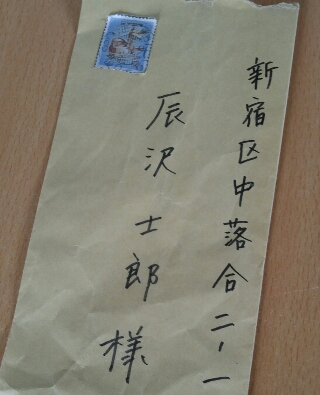 新宿区中落合二-一
辰沢士郎様